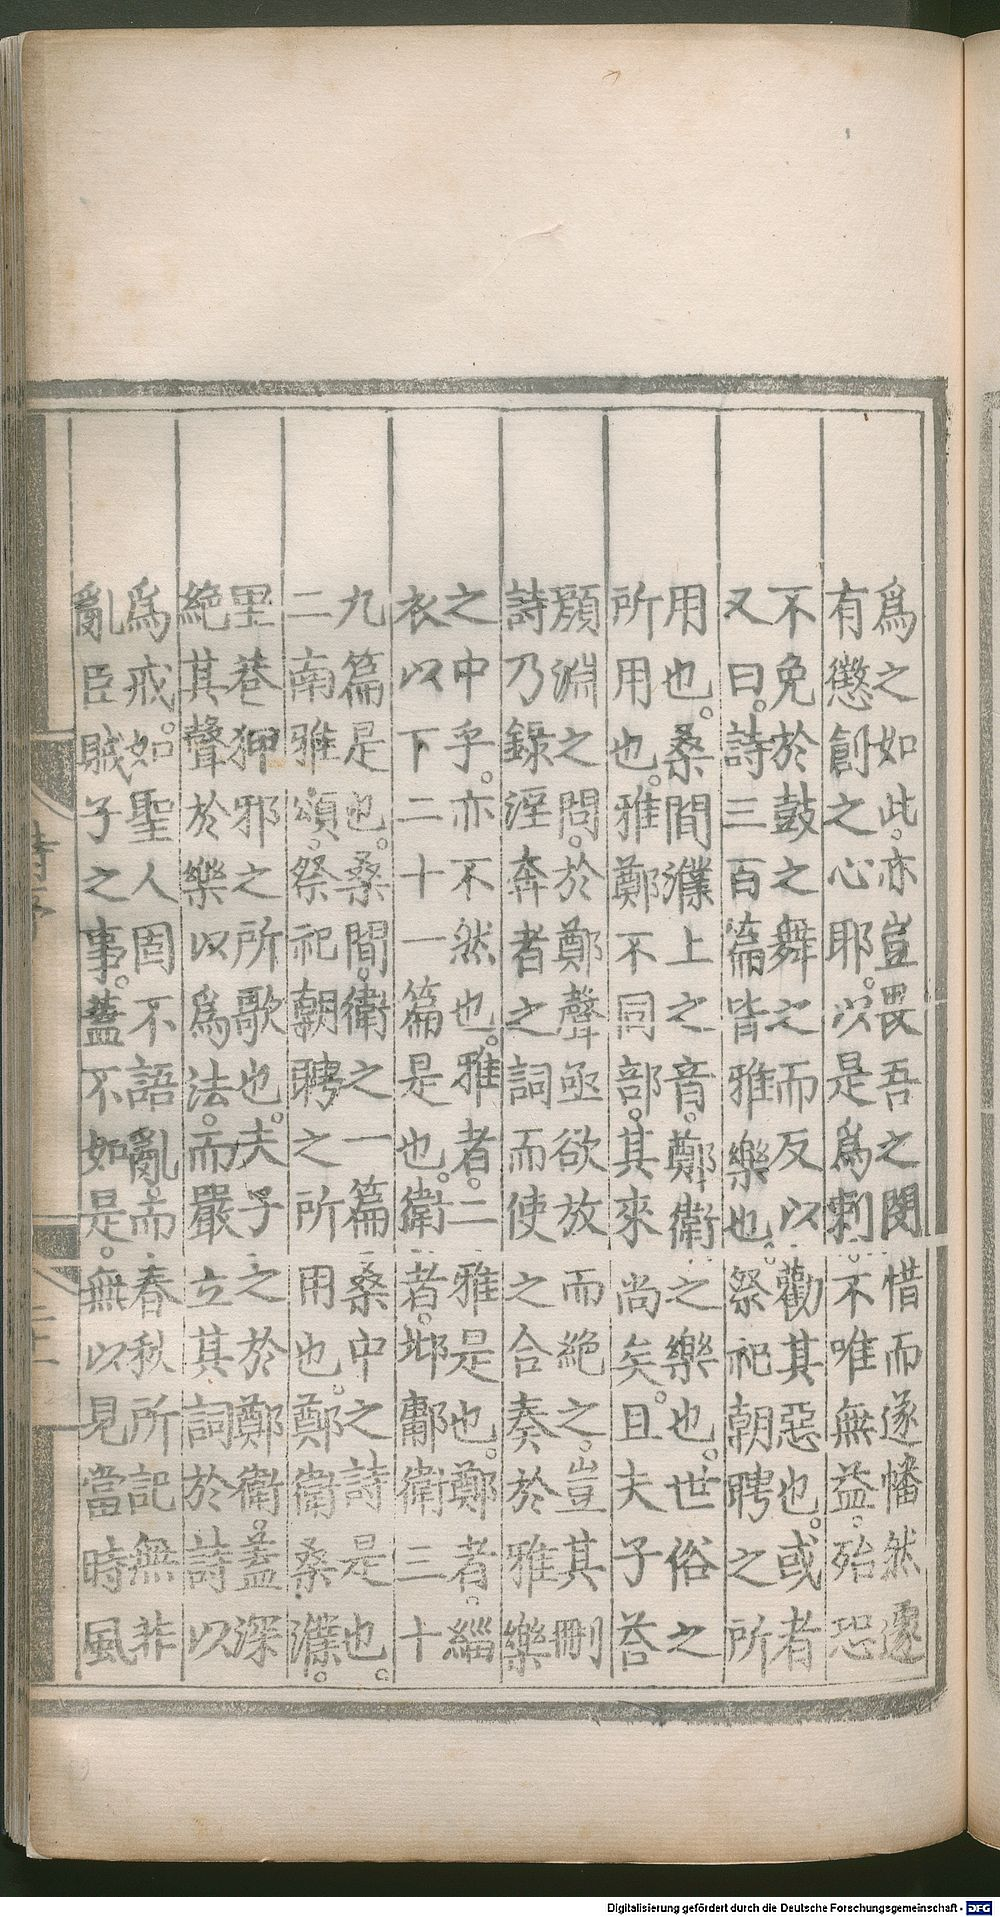 爲之如此。亦豈畏吾之閔惜而遂幡然遽
有懲創之心耶。以是爲刺。不唯無益。殆恐
不免於鼓之舞之而反以勸其惡也。或者
又曰。詩三百篇皆雅樂也。祭祀朝聘之所
用也。桑間濮上之音。鄭衛之樂也。世俗之
所用也。雅鄭不同部。其來尚矣。且夫子荅
顔淵之問。於鄭聲亟欲放而絶之。豈其刪
詩乃録淫奔者之詞而使之合奏於雅樂
之中乎。亦不然也。雅者。二雅是也。鄭者。緇
衣以下二十一篇是也。衛者。邶鄘衛三十
九篇是也。桑間。衛之一篇桑中之詩是也。
二南雅頌。祭祀朝聘之所用也。鄭衛桑濮。
里巷狎邪之所歌也。夫子之於鄭衛。蓋深
絶其聲於樂以爲法。而嚴立其詞於詩以
爲戒。如聖人固不語亂。而春秋所記無非
亂臣賊子之事。蓋不如是。無以見當時風
詩序
二十一
Digitalisierung gefördert durch die Deutsche Forschungsgemeinschaft - DFG